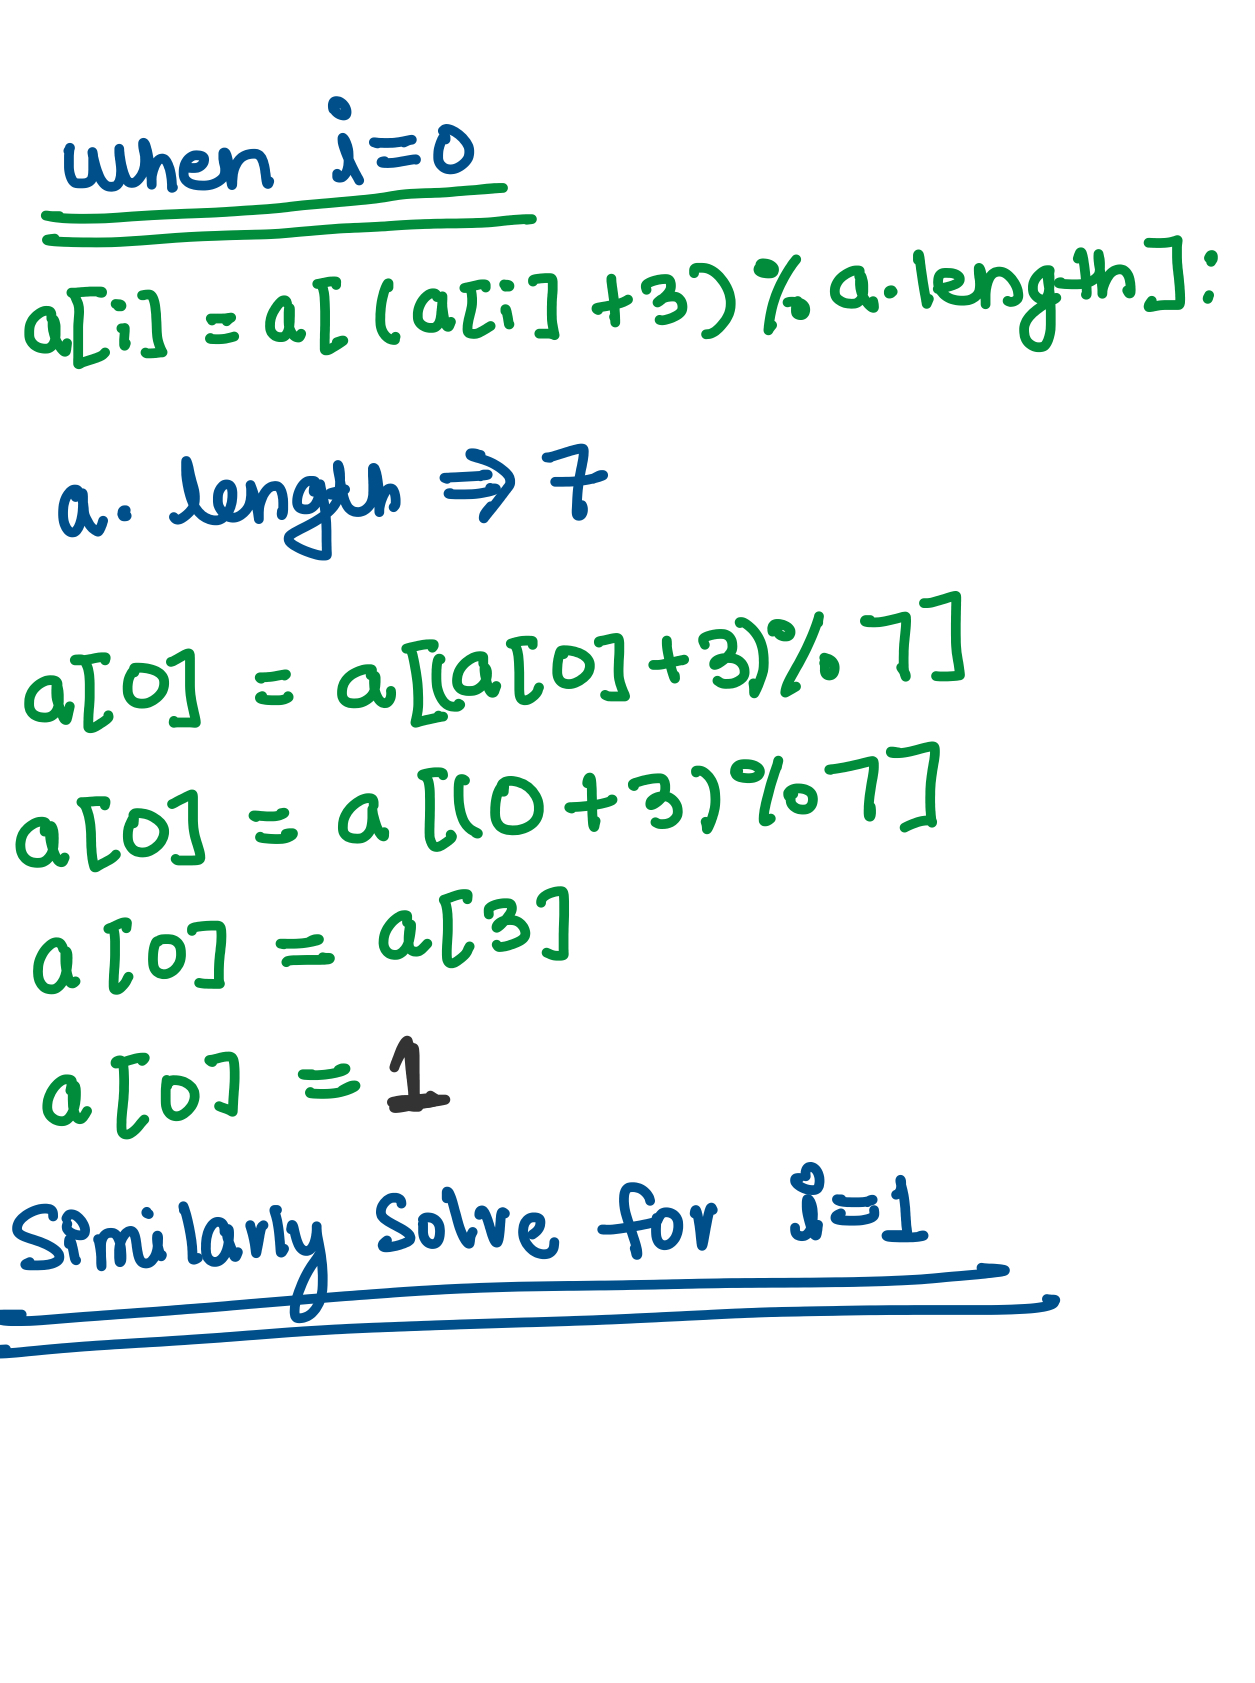 when i=0
a[i] = a[(a[i]+3)% a.length]:
a. length ⇒ 7
a[0] = a[(a[0]+3)% 7]
a[0] = a[(0+3)%7]
a[0] = a[3]
a[0] = 1
Similarly Solve for i=1